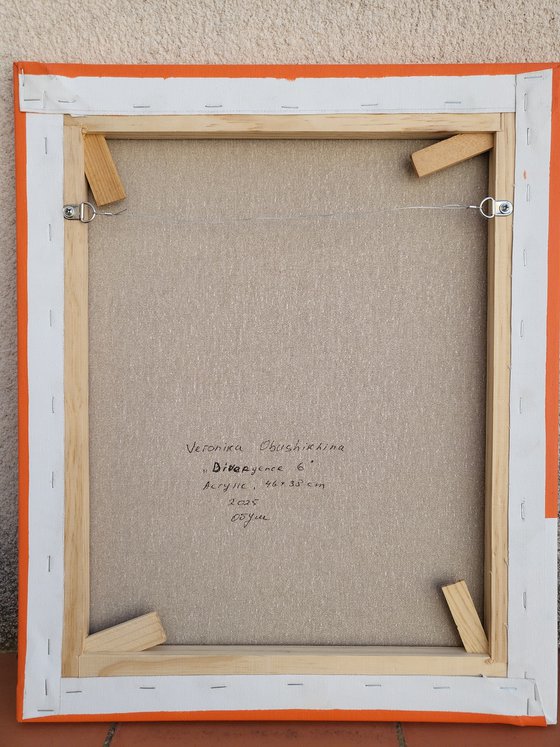 Veronika Obushikhina
„Divergence 6"
Acrylic, 46×38 cm
2025
Обуш